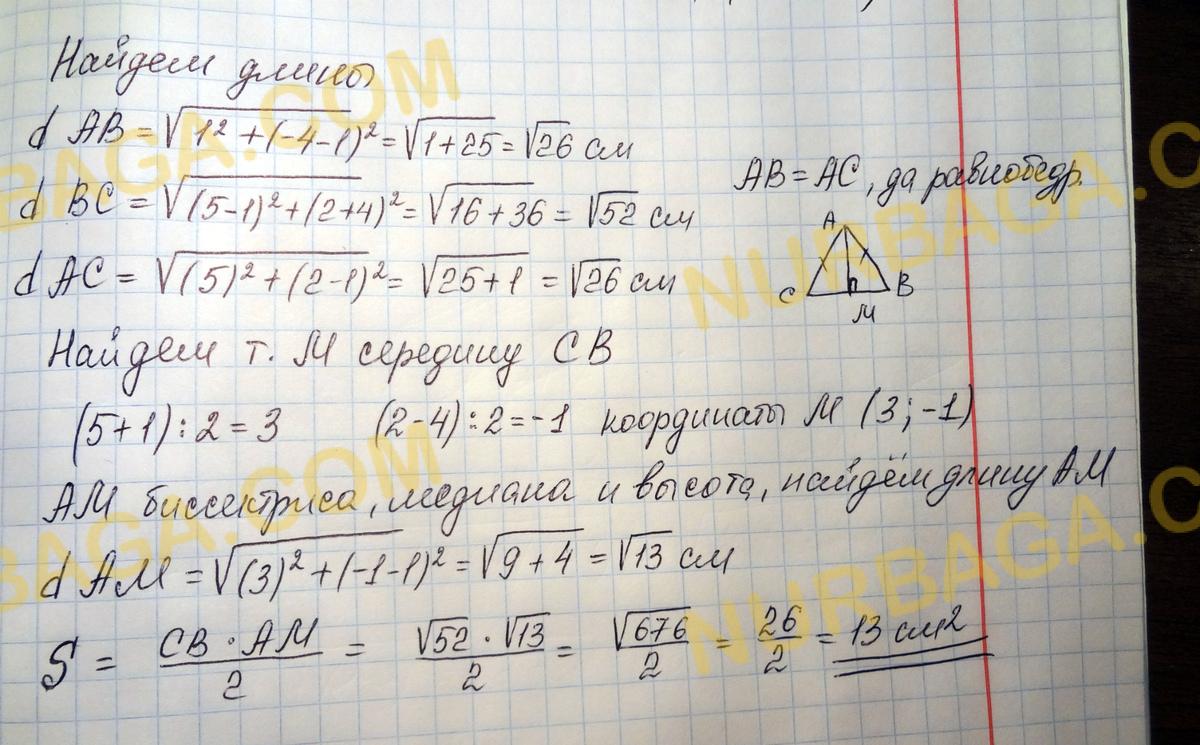 Найдем длины
d AB = √(1² + (-4-1)²) = √(1+25) = √26 см
d BC = √((5-1)² + (2+4)²) = √(16+36) = √52 см
d AC = √((5)² + (2-1)²) = √(25+1) = √26 см
AB = AC, да равнобедр.
A
C
B
M
Найдем т. М середину СВ
(5+1) : 2 = 3 (2-4) : 2 = -1 координаты М (3; -1)
АМ биссектриса, медиана и высота, найдём длину АМ
d AM = √((3)² + (-1-1)²) = √(9+4) = √13 см
S = CB · AM / 2 = √52 · √13 / 2 = √676 / 2 = 26 / 2 = 13 см²
NURBAGA.COM